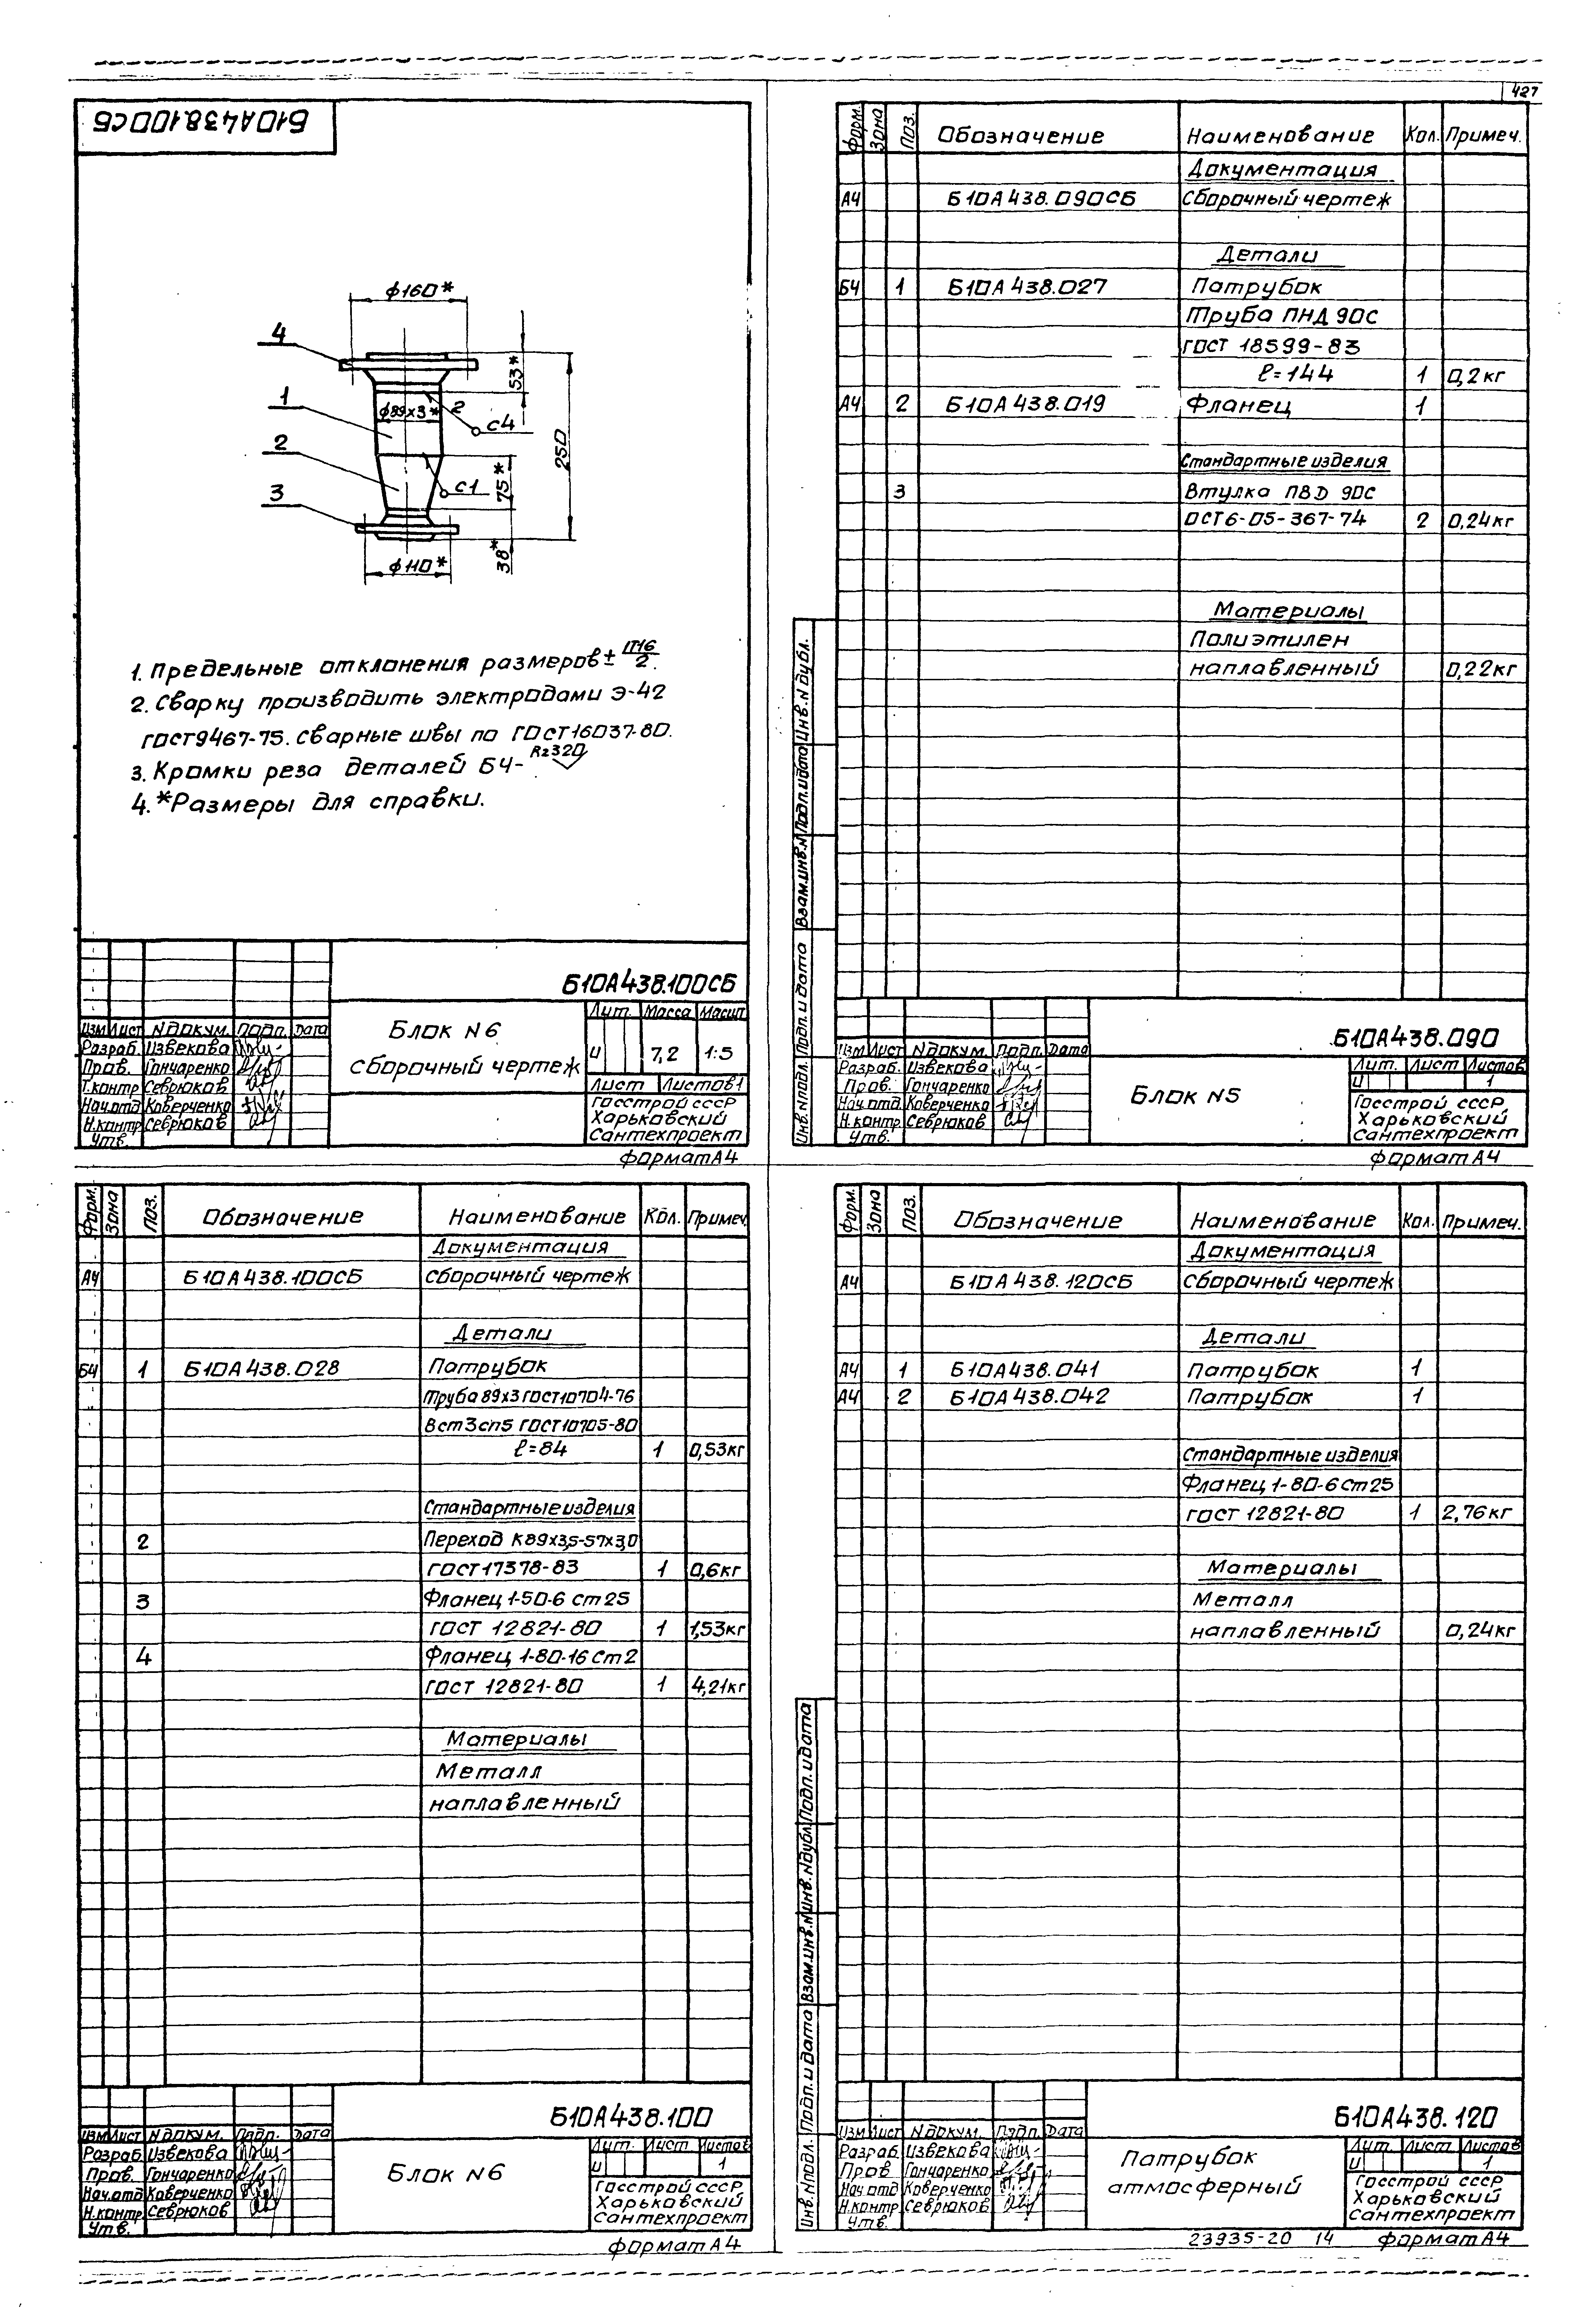 427
Б10А438.100СБ
ф160*
4
53*
1
ф89х3*
2
С4
250
2
75*
С1
3
38*
ф110*
1. Предельные отклонения размеров ± IT16/2.
2. Сварку производить электродами Э-42
ГОСТ 9467-75. Сварные швы по ГОСТ 16037-80.
3. Кромки реза деталей БЧ- Rz320
4. *Размеры для справки.
Б10А438.100СБ
Блок N6
сборочный чертеж
Лит. Масса Масшт
И 7,2 1:5
Лист Листов 1
Изм Лист N докум. Подп. Дата
Разраб. Извекова
Пров. Гончаренко
Т.контр Севрюков
Нач.отд Коверченко
Н.контр Севрюков
Утв.
Госстрой СССР
Харьковский
Сантехпроект
Формат А4
Форм. Зона Поз. Обозначение Наименование Кол. Примеч.
Документация
А4 Б10А438.090СБ Сборочный чертеж
Детали
БЧ 1 Б10А438.027 Патрубок
Труба ПНД 90С
ГОСТ 18599-83
ℓ=144 1 0,2кг
А4 2 Б10А438.019 Фланец 1
Стандартные изделия
3 Втулка ПВД 90С
ОСТ6-05-367-74 2 0,24кг
Материалы
Полиэтилен
наплавленный 0,22кг
Инв.N подл. Подп. и дата Взам.инв.N Инв.N дубл. Подп. и дата
Б10А438.090
Изм Лист N докум. Подп. Дата
Разраб. Извекова
Пров. Гончаренко
Нач.отд. Коверченко
Н.контр. Севрюков
Утв.
Блок N5
Лит. Лист Листов
И 1
Госстрой СССР
Харьковский
Сантехпроект
Формат А4
Форм. Зона Поз. Обозначение Наименование Кол. Примеч.
Документация
А4 Б10А438.100СБ Сборочный чертеж
Детали
БЧ 1 Б10А438.028 Патрубок
Труба 89х3 ГОСТ10704-76
Вст3сп5 ГОСТ10705-80
ℓ=84 1 0,53кг
Стандартные изделия
2 Переход К89х3,5-57х3,0
ГОСТ17378-83 1 0,6кг
3 Фланец 1-50-6 Ст25
ГОСТ 12821-80 1 1,53кг
4 Фланец 1-80-16 Ст2
ГОСТ 12821-80 1 4,21кг
Материалы
Металл
наплавленный
Б10А438.100
Изм Лист N докум. Подп. Дата
Разраб. Извекова
Пров. Гончаренко
Нач.отд Коверченко
Н.контр. Севрюков
Утв.
Блок N6
Лит. Лист Листов
И 1
Госстрой СССР
Харьковский
Сантехпроект
Формат А4
Форм. Зона Поз. Обозначение Наименование Кол. Примеч.
Документация
А4 Б10А438.120СБ Сборочный чертеж
Детали
А4 1 Б10А438.041 Патрубок 1
А4 2 Б10А438.042 Патрубок 1
Стандартные изделия
Фланец 1-80-6 Ст25
ГОСТ 12821-80 1 2,76кг
Материалы
Металл
наплавленный 0,24кг
Инв.N подл. Подп. и дата Взам.инв.N Инв.N дубл. Подп. и дата
Б10А438.120
Изм Лист N докум. Подп. Дата
Разраб. Извекова
Пров Гончаренко
Нач.отд Коверченко
Н.контр. Севрюков
Утв.
Патрубок
атмосферный
Лит. Лист Листов
И 1
Госстрой СССР
Харьковский
Сантехпроект
23935-20 14 Формат А4